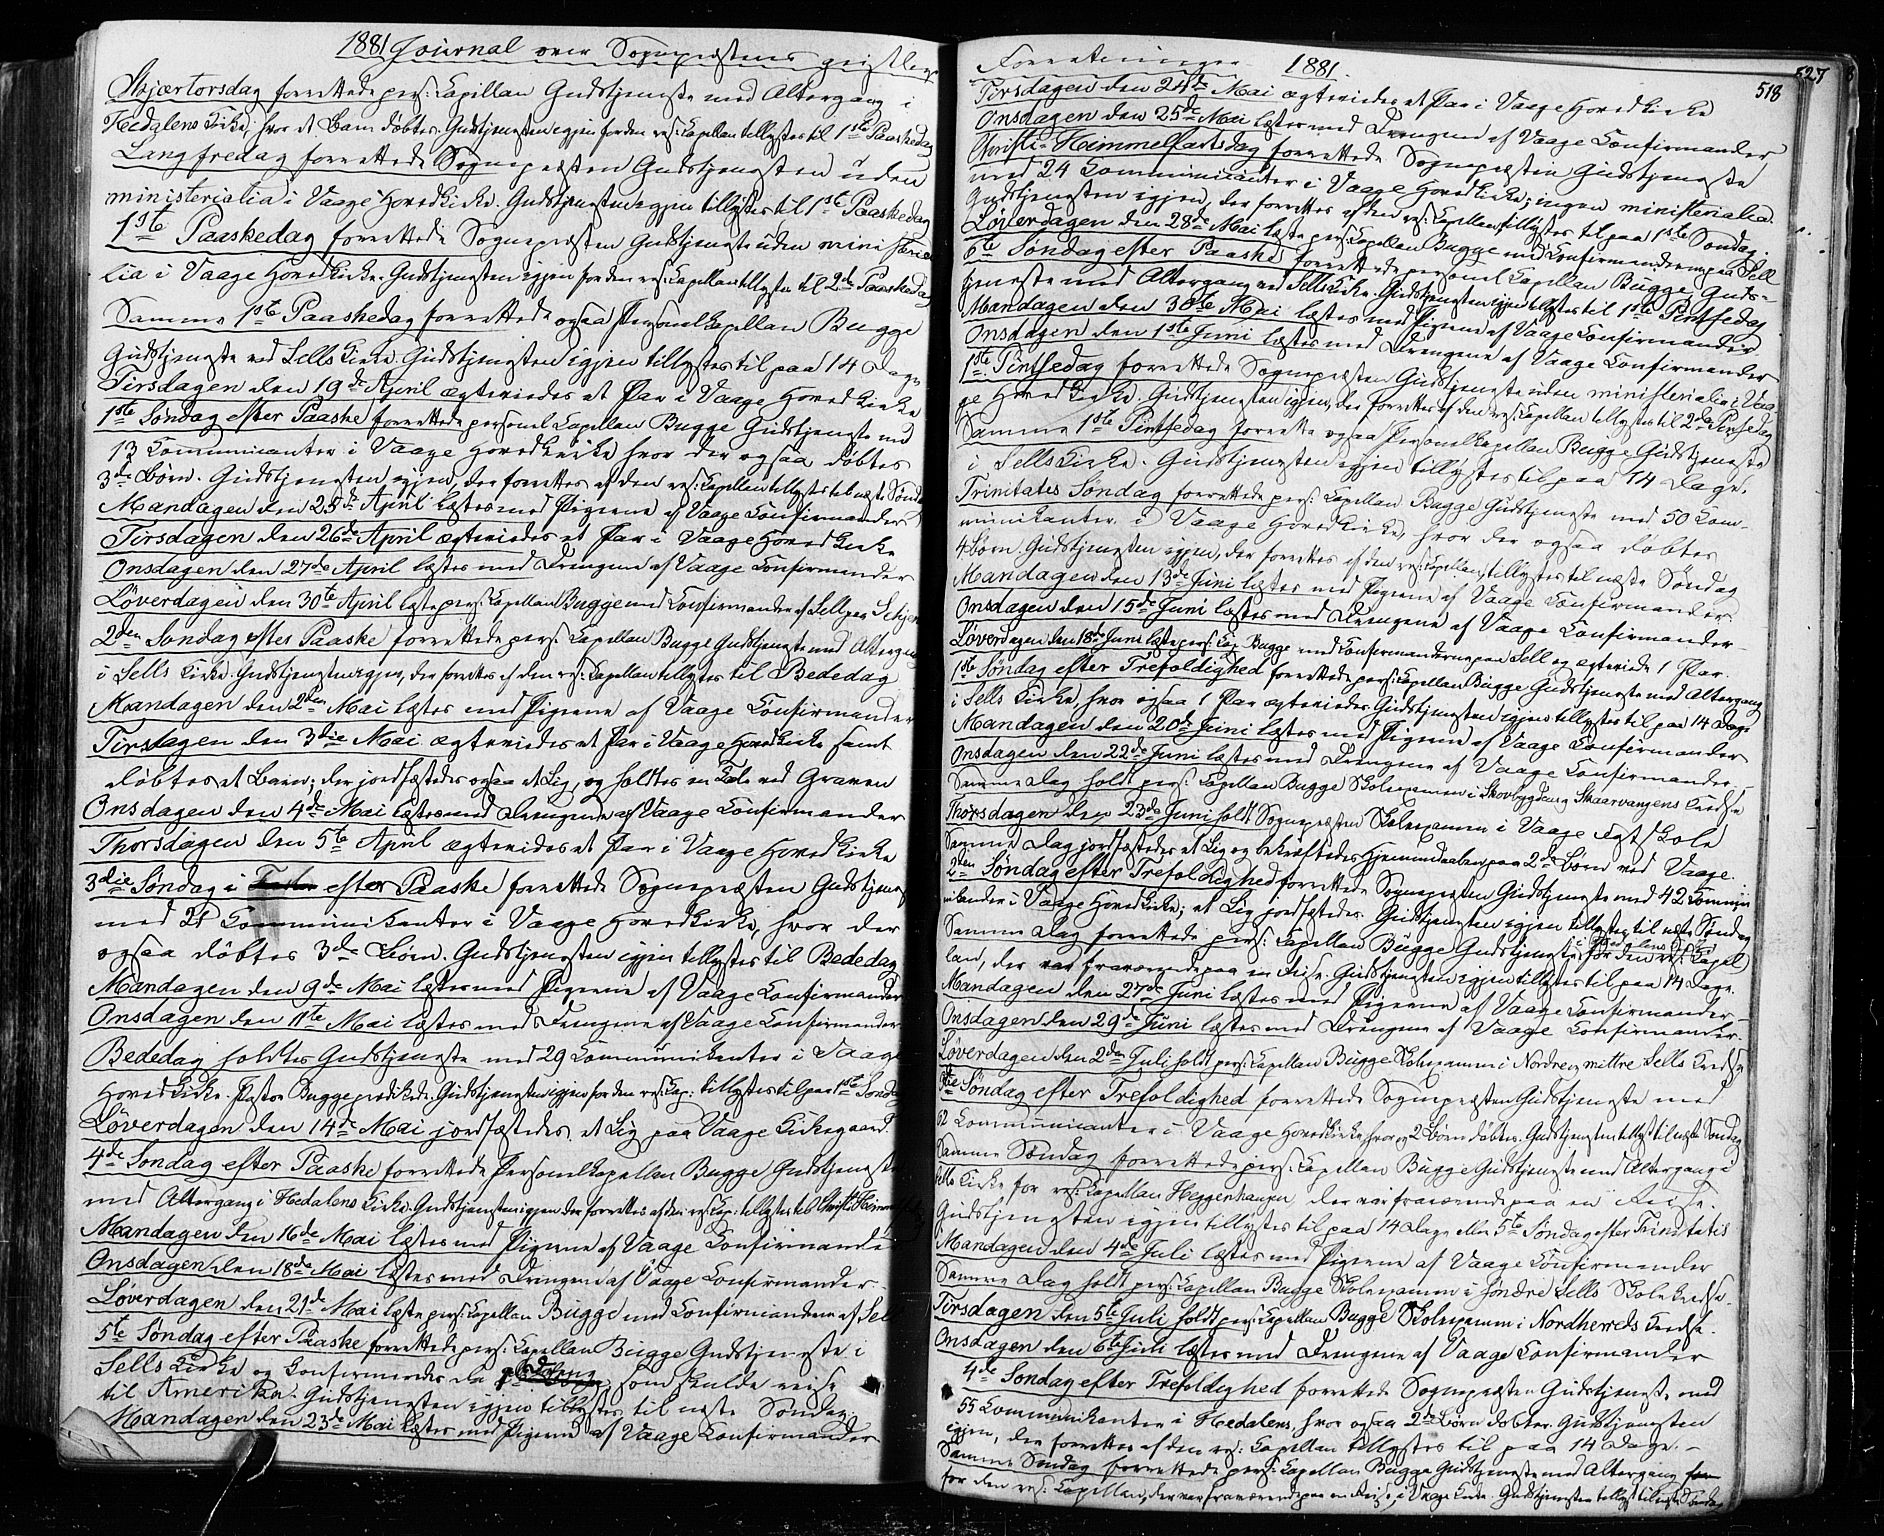 1881 Journal over Sognepræstens geistlige
Skjærtorsdag forrettede pers: Capellan Gudstjeneste med Altergang i
Hedalens Kirke, hvor et Barn døbtes. Gudstjenesten igjen for den res: Capellan tillystes til 1ste Paaskedag
Langfredag forrettede Sognepræsten Gudstjenesten uden
ministerialia i Vaage Hovedkirke. Gudstjenesten igjen tillystes til 1ste Paaskedag
1ste Paaskedag forrettede Sognepræsten Gudstjeneste uden ministeria
lia i Vaage Hovedkirke. Gudstjenesten igjen for den res: Capellan tillystes til 2de Paaskedag
Samme 1ste Paaskedag forrettede ogsaa Personelkapellan Bugge
Gudstjeneste ved Sells Kirke. Gudstjenesten igjen tillystes til paa 14 Dage
Tirsdagen den 19de April ægteviedes et Par i Vaage Hovedkirke
1ste Søndag efter Paaske forrettede personel Capellan Bugge Gudstjeneste med
13 Communicanter i Vaage Hovedkirke hvor der ogsaa døbtes
3de Børn. Gudstjenesten igjen, der forrettes af den res: Capellan tillystes til næste Søndag
Mandagen den 25de April læstes med Pigerne af Vaage Confirmander
Tirsdagen den 26de April ægteviedes et Par i Vaage Hovedkirke
Onsdagen den 27de April læstes med Drengene af Vaage Confirmander
Løverdagen den 30te April læste pers: Capellan Bugge med Confirmander af Sell
2den Søndag efter Paaske forrettede pers: Capellan Bugge Gudstjeneste med Altergang
i Sells Kirke. Gudstjenesten igjen, der forrettes af den res: Capellan tillystes til Bededag
Mandagen den 2den Mai læstes med Pigerne af Vaage Confirmander
Tirsdagen den 3die Mai ægteviedes et Par i Vaage Hovedkirke samt
døbtes et Barn; der jordfæstedes ogsaa et Lig, og holdtes en Tale ved Graven
Onsdagen den 4de Mai læstes med Drengene af Vaage Confirmander
Thorsdagen den 5te April ægteviedes et Par i Vaage Hovedkirke
3die Søndag i efter Paaske forrettede Sognepræsten Gudstjeneste
med 21 Communikanter i Vaage Hovedkirke, hvor der
ogsaa døbtes 3de Børn. Gudstjenesten igjen tillystes til Bededag
Mandagen den 9de Mai læstes med Pigerne af Vaage Confirmander
Onsdagen den 11te Mai læstes med Drengene af Vaage Confirmander
Bededag holdtes Gudstjeneste med 29 Communikanter i Vaage
Hovedkirke. Pastor Bugge prædikede. Gudstjenesten igjen for den res: Kap: tillystes til paa 1ste Søndag
Løverdagen den 14de Mai jordfæstedes et Lig paa Vaage Kirkegaard.
4de Søndag efter Paaske forrettede Personelkapellan Bugge Gudstjeneste
med Altergang i Hedalens Kirke. Gudstjenesten igjen der forrettes af den res: Cap: tillystes til Christi Himmelf
Mandagen den 16de Mai læstes med Pigerne af Vaage Confirmande
Onsdagen den 18de Mai læstes med Drengene af Vaage Confirmander
Løverdagen den 21de Mai læste pers: Capellan Bugge med Confirmanderne af Sel
5te Søndag efter Paaske forrettede pers: Capellan Bugge Gudstjeneste i
Sells Kirke og Confirmeredes da som skulde reise
til Amerika. Gudstjenesten igjen tillystes til næste Søndag.
Mandagen den 23de Mai læstes med Pigerne af Vaage Confirmander
Forretninger 1881.
527
518
Tirsdagen den 24de Mai ægteviedes et Par i Vaage Hovedkirke
Onsdagen den 25de Mai læstes med Drengene af Vaage Confirmander
Christi-Himmelfartsdag forrettede Sognepræsten Gudstjeneste
med 24 Communicanter i Vaage Hovedkirke; ingen ministerialia.
Gudstjenesten igjen, der forrettes af den res: Capellan tillystes til paa 1ste Søndag
Løverdagen den 28de Mai læste pers: Capellan Bugge med Confirmanderne paa Sell
6te Søndag efter Paaske forrettede personel Capellan Bugge Guds-
tjeneste med Altergang ved Sells Kirke. Gudstjenesten igjen tillystes til 1ste Pintsedag
Mandagen den 30te Mai læstes med Pigerne af Vaage Confirmander
Onsdagen den 1ste Juni læstes med Drengene af Vaage Confirmander
1ste Pintsedag forrettede Sognepræsten Gudstjeneste uden ministerialia i Vaa-
ge Hovedkirke. Gudstjenesten igjen, der forrettes af den res: Capellan tillystes til 2de Pintsedag
Samme 1ste Pintsedag forrettede ogsaa Personelkapellan Bugge Gudstjeneste
i Sells Kirke. Gudstjenesten igjen tillystes til paa 14 Dage.
Trinitatis Søndag forrettede pers: Capellan Bugge Gudstjeneste med 50 Com-
munikanter i Vaage Hovedkirke, hvor der ogsaa døbtes
4 Børn. Gudstjenesten igjen, der forrettes af den res: Capellan, tillystes til næste Søndag
Mandagen den 13de Juni læstes med Pigerne af Vaage Confirmander
Onsdagen den 15de Juni læstes med Drengene af Vaage Confirmander
Løverdagen den 18de Juni læste pers: Cap: Bugge med Confirmanderne paa Sell og ægteviede 1 Par.
1ste Søndag efter Trefoldighed forrettede pers: Capellan Bugge Gudstjeneste med Altergang
i Sells Kirke, hvor ogsaa 1 Par ægteviedes. Gudstjenesten igjen tillystes til paa 14 Dage
Mandagen den 20de Juni læstes med Pigerne af Vaage Confirmander
Onsdagen den 22de Juni læstes med Drengene af Vaage Confirmander
Samme Dag holdt pers: Capellan Bugge Skolexamen i Skovbygdens Skaarvangens Kredse
Thorsdagen den 23de Juni holdt Sognepræsten Skolexamen i Vaage fast Skole
Samme Dag jordfæstedes et Lig og bekræftedes Hjemmedaaben paa 2de Børn ved Vaage.
2den Søndag efter Trefoldighed forrettede Sognepræsten Gudstjeneste med 42 Commun
ikanter i Vaage Hovedkirke; et Lig jordfæstedes. Gudstjenesten igjen tillystes til næste Søndag
Samme Dag forrettede pers: Capellan Bugge Gudstjeneste i Hedalens Kirke for den res: Capel
lan, der var fraværende paa en Reise. Gudstjenesten igjen tillystes til paa 14 Dage.
Mandagen den 27de Juni læstes med Pigerne af Vaage Confirmander
Onsdagen den 29de Juni læstes med Drengene af Vaage Confirmander
Løverdagen den 2den Juli holdt pers: Capellan Bugge Skolexamen i Nordre og mittre Sells Kredse
3die Søndag efter Trefoldighed forrettede Sognepræsten Gudstjeneste med
62 Communicanter i Vaage Hovedkirke, hvor og 2 Børn døbtes. Gudstjenesten tillyst til næste Søndag
Samme Søndag forrettede pers: Capellan Bugge Gudstjeneste med Altergang i
Sells Kirke for res: Capellan Heggenhaugen der var fraværende paa en Reise.
Gudstjenesten igjen tillystes til paa 14 Dage eller 5te Søndag efter Trinitatis
Mandagen den 4de Juli læstes med Pigerne af Vaage Confirmander
Samme Dag holdt pers: Capellan Bugge Skolexamen i søndre Sells Skolekreds.
Tirsdagen den 5te Juli holdt pers: Capellan Bugge Skolexamen i Nordherreds Kredse.
Onsdagen den 6te Juli læstes med Drengene af Vaage Confirmander
4de Søndag efter Trefoldighed forrettede Sognepræsten Gudstjeneste med
55 Communikanter i Hedalens, hvor ogsaa 2de Børn døbtes. Gudstjenesten
igjen, der forrettes af den res: Capellan tillystes til paa 14 Dage.
Samme Søndag forrettede pers: Capellan Bugge Gudstjeneste med Altergang for
for den res: Capellan, der var fraværende paa en Reise, i Vaage Kirke. Gudstjenesten tillyst til næste Søndag